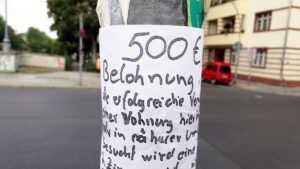 500 €
Belohnung
erfolgreiche Ver
einer Wohnung hier
in näherer Um
Gesucht wird eine